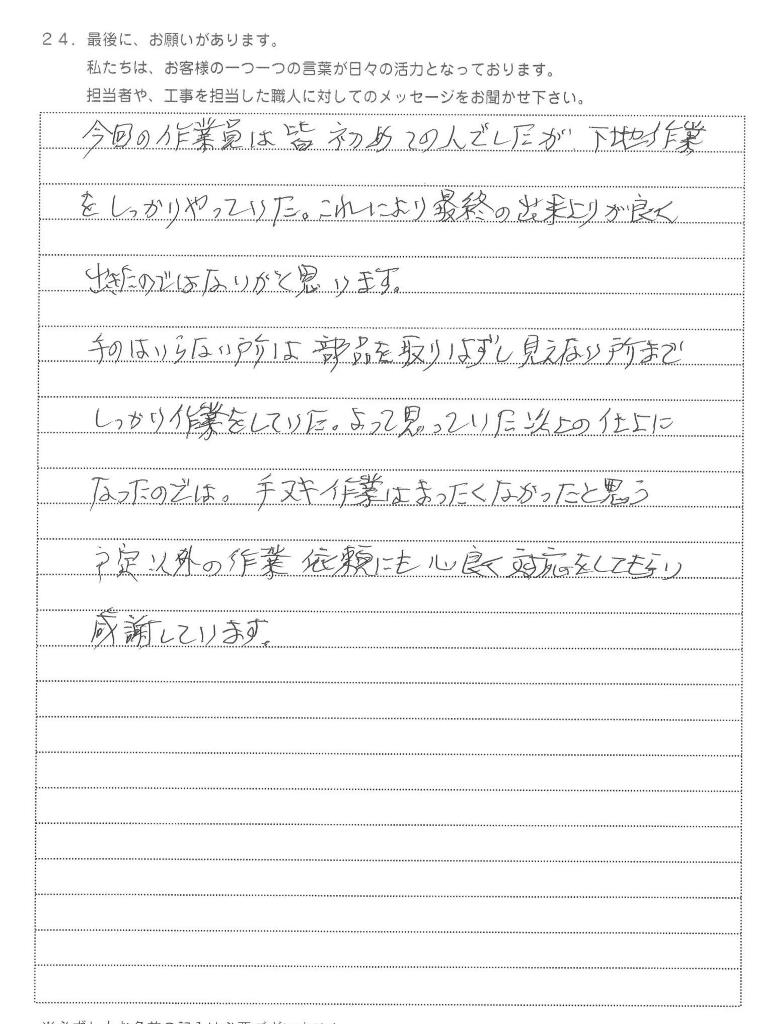 24．最後に、お願いがあります。
私たちは、お客様の一つ一つの言葉が日々の活力となっております。
担当者や、工事を担当した職人に対してのメッセージをお聞かせ下さい。
今回の作業員は皆初めての人でしたが下地作業
をしっかりやっていた。これにより最終の出来上りが良く
出きたのではないかと思います。
手のはいらない所は部品を取りはずし見えない所まで
しっかり作業をしていた。よって思っていた以上の仕上に
なったのでは。手ヌキ作業はまったくなかったと思う
予定以外の作業依頼にも心良く対応をしてもらい
感謝しています。